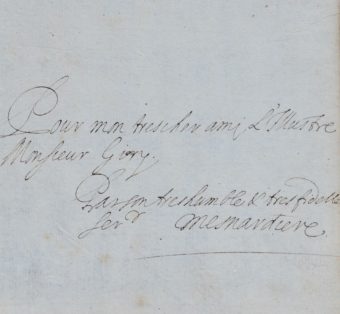 Pour mon trescher ami L'Illustre
Monsieur Giry.
Par son treshumble & tresfidelle
Serr. Mesnardiere.